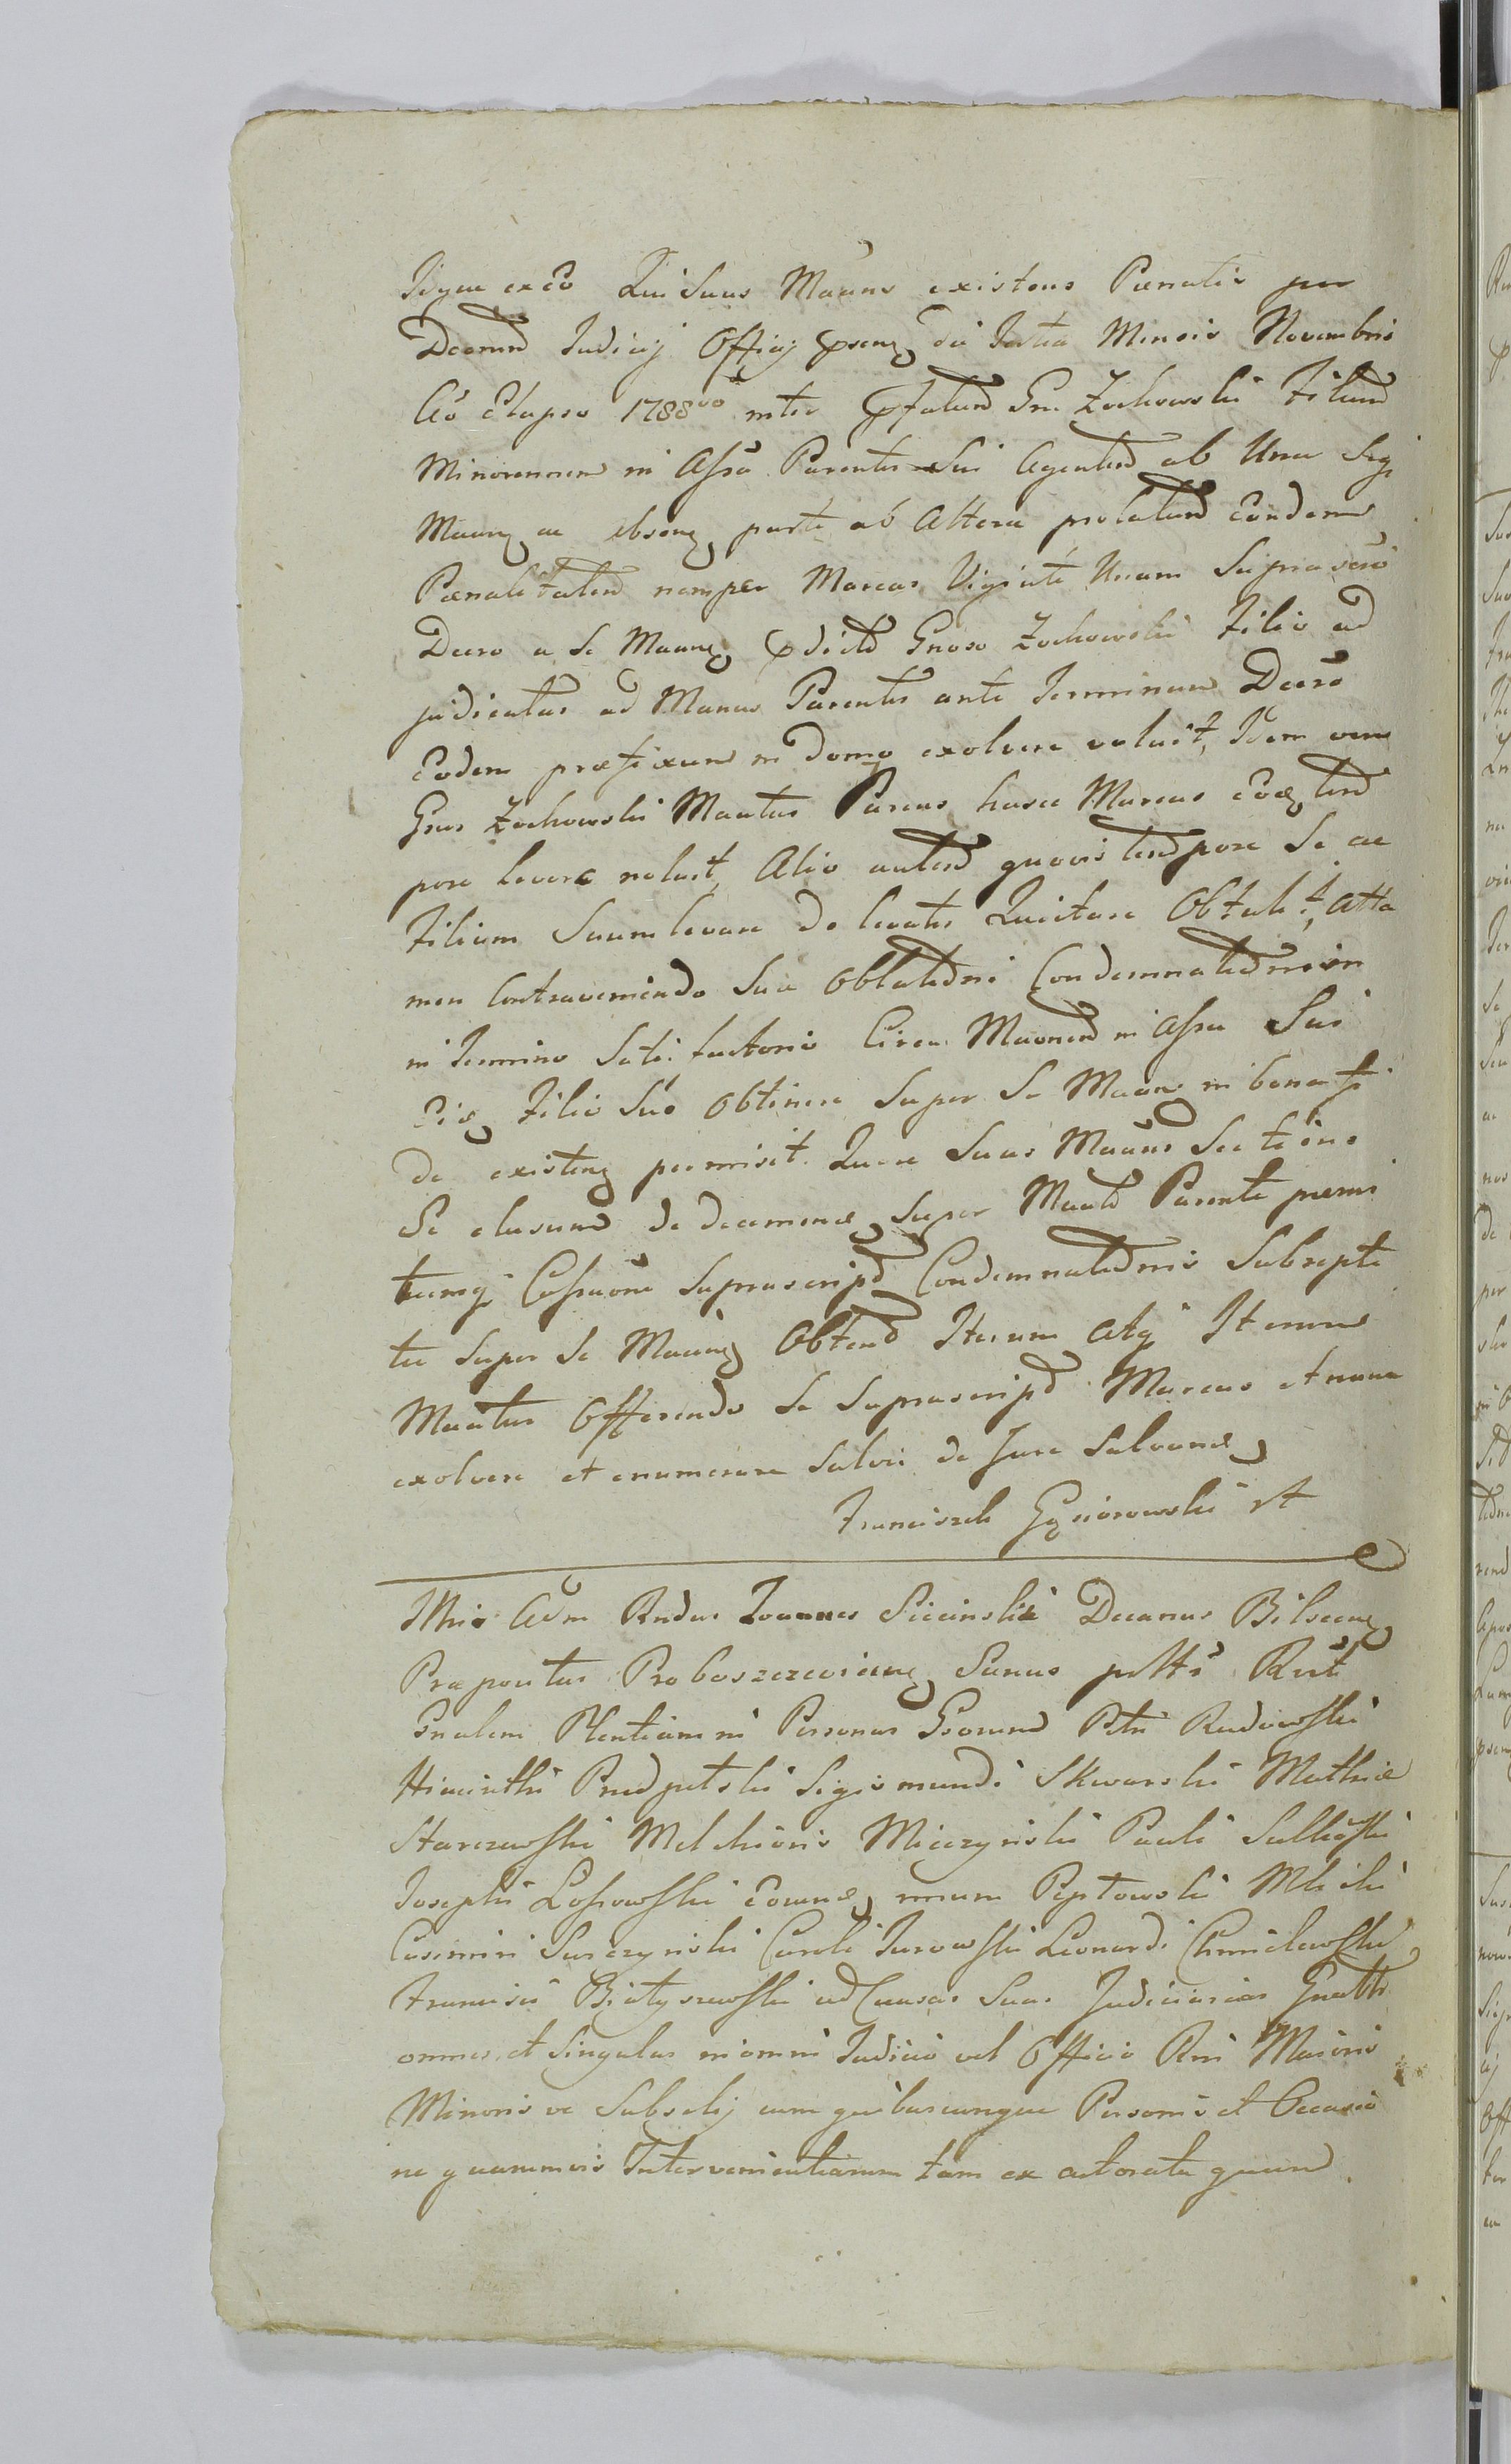 Idque ex eo Qui Suus Maans existens Poenatis per
Decrum Judicij Officij psens die Tertia Mensis Novembris
Ao Elapso 1788vo inter pfatum Gn Zochowski Filium
Minorennem in Assa Parentis Sui Agentem ab Una Seq
Maans ac absens parte ab Altera prolatum Eandem
Poenalitatem nemper Marcas Viginti Unam Supra vero
Decro a Se Maans pdicto Gnoso Zochowski Filio ad
judicatas ad Manus Parentis ante Terminum Decro
Eodem praefixum in domo exolvere voluit, Idem vero
Gnus Zochowski Maatus Parens hasce Marcas Eoq tem
pore levare noluit, Alio autem quovis tempore Se ac
Filium Suum levare de levatis Quietare Obtulit, Atta
men Contraveniendo Suae Oblatedni Condemnatednem
in Termino Satisfactorio Circa Maanem in Assa Sui
Eiq Filio Suo Obtinere Super Se Maans in bona fi
de existens permisit. Quare Suus Maans Sectione
Se clusum de decernend Super Maato Parente praemi
ssumq Cassaone Suprascript Condemnatednis Subrepti
tie Super Se Maans Obtend Iterum Atq Iterum
Maatus Offerendo Se Suprascript Marcas et nunc
exolvere et enumerare Salvis de Jure Salvand
Franciszek Gąsiorowski
Adm Rndus Joannes Siecinski Decanus Bilscens
Praepositus Proboszczewicens Sanus
Gnalem Plentiam in Personas Gsorum Petri Rudowski
Hiacinthi Prudpetski Sigismundi Skwarski Mathiae
Starczewski Melchioris Miczynski Pauli Sulkoski
Josephi Lossowski Peptowski
Casimiri Surczynski Caroli Jurowski Leonardi Chmielewski
Francisci Białyszewski ad Causas Suas Judiciarias Gnatt
omnes et Singulas in omni Judicio vel Officio Rni Majoris
Minoris ve Subselij cum quibuscunque Personis et Occasio
ne quammvis Intervenientiarum tam ex actoratu quam